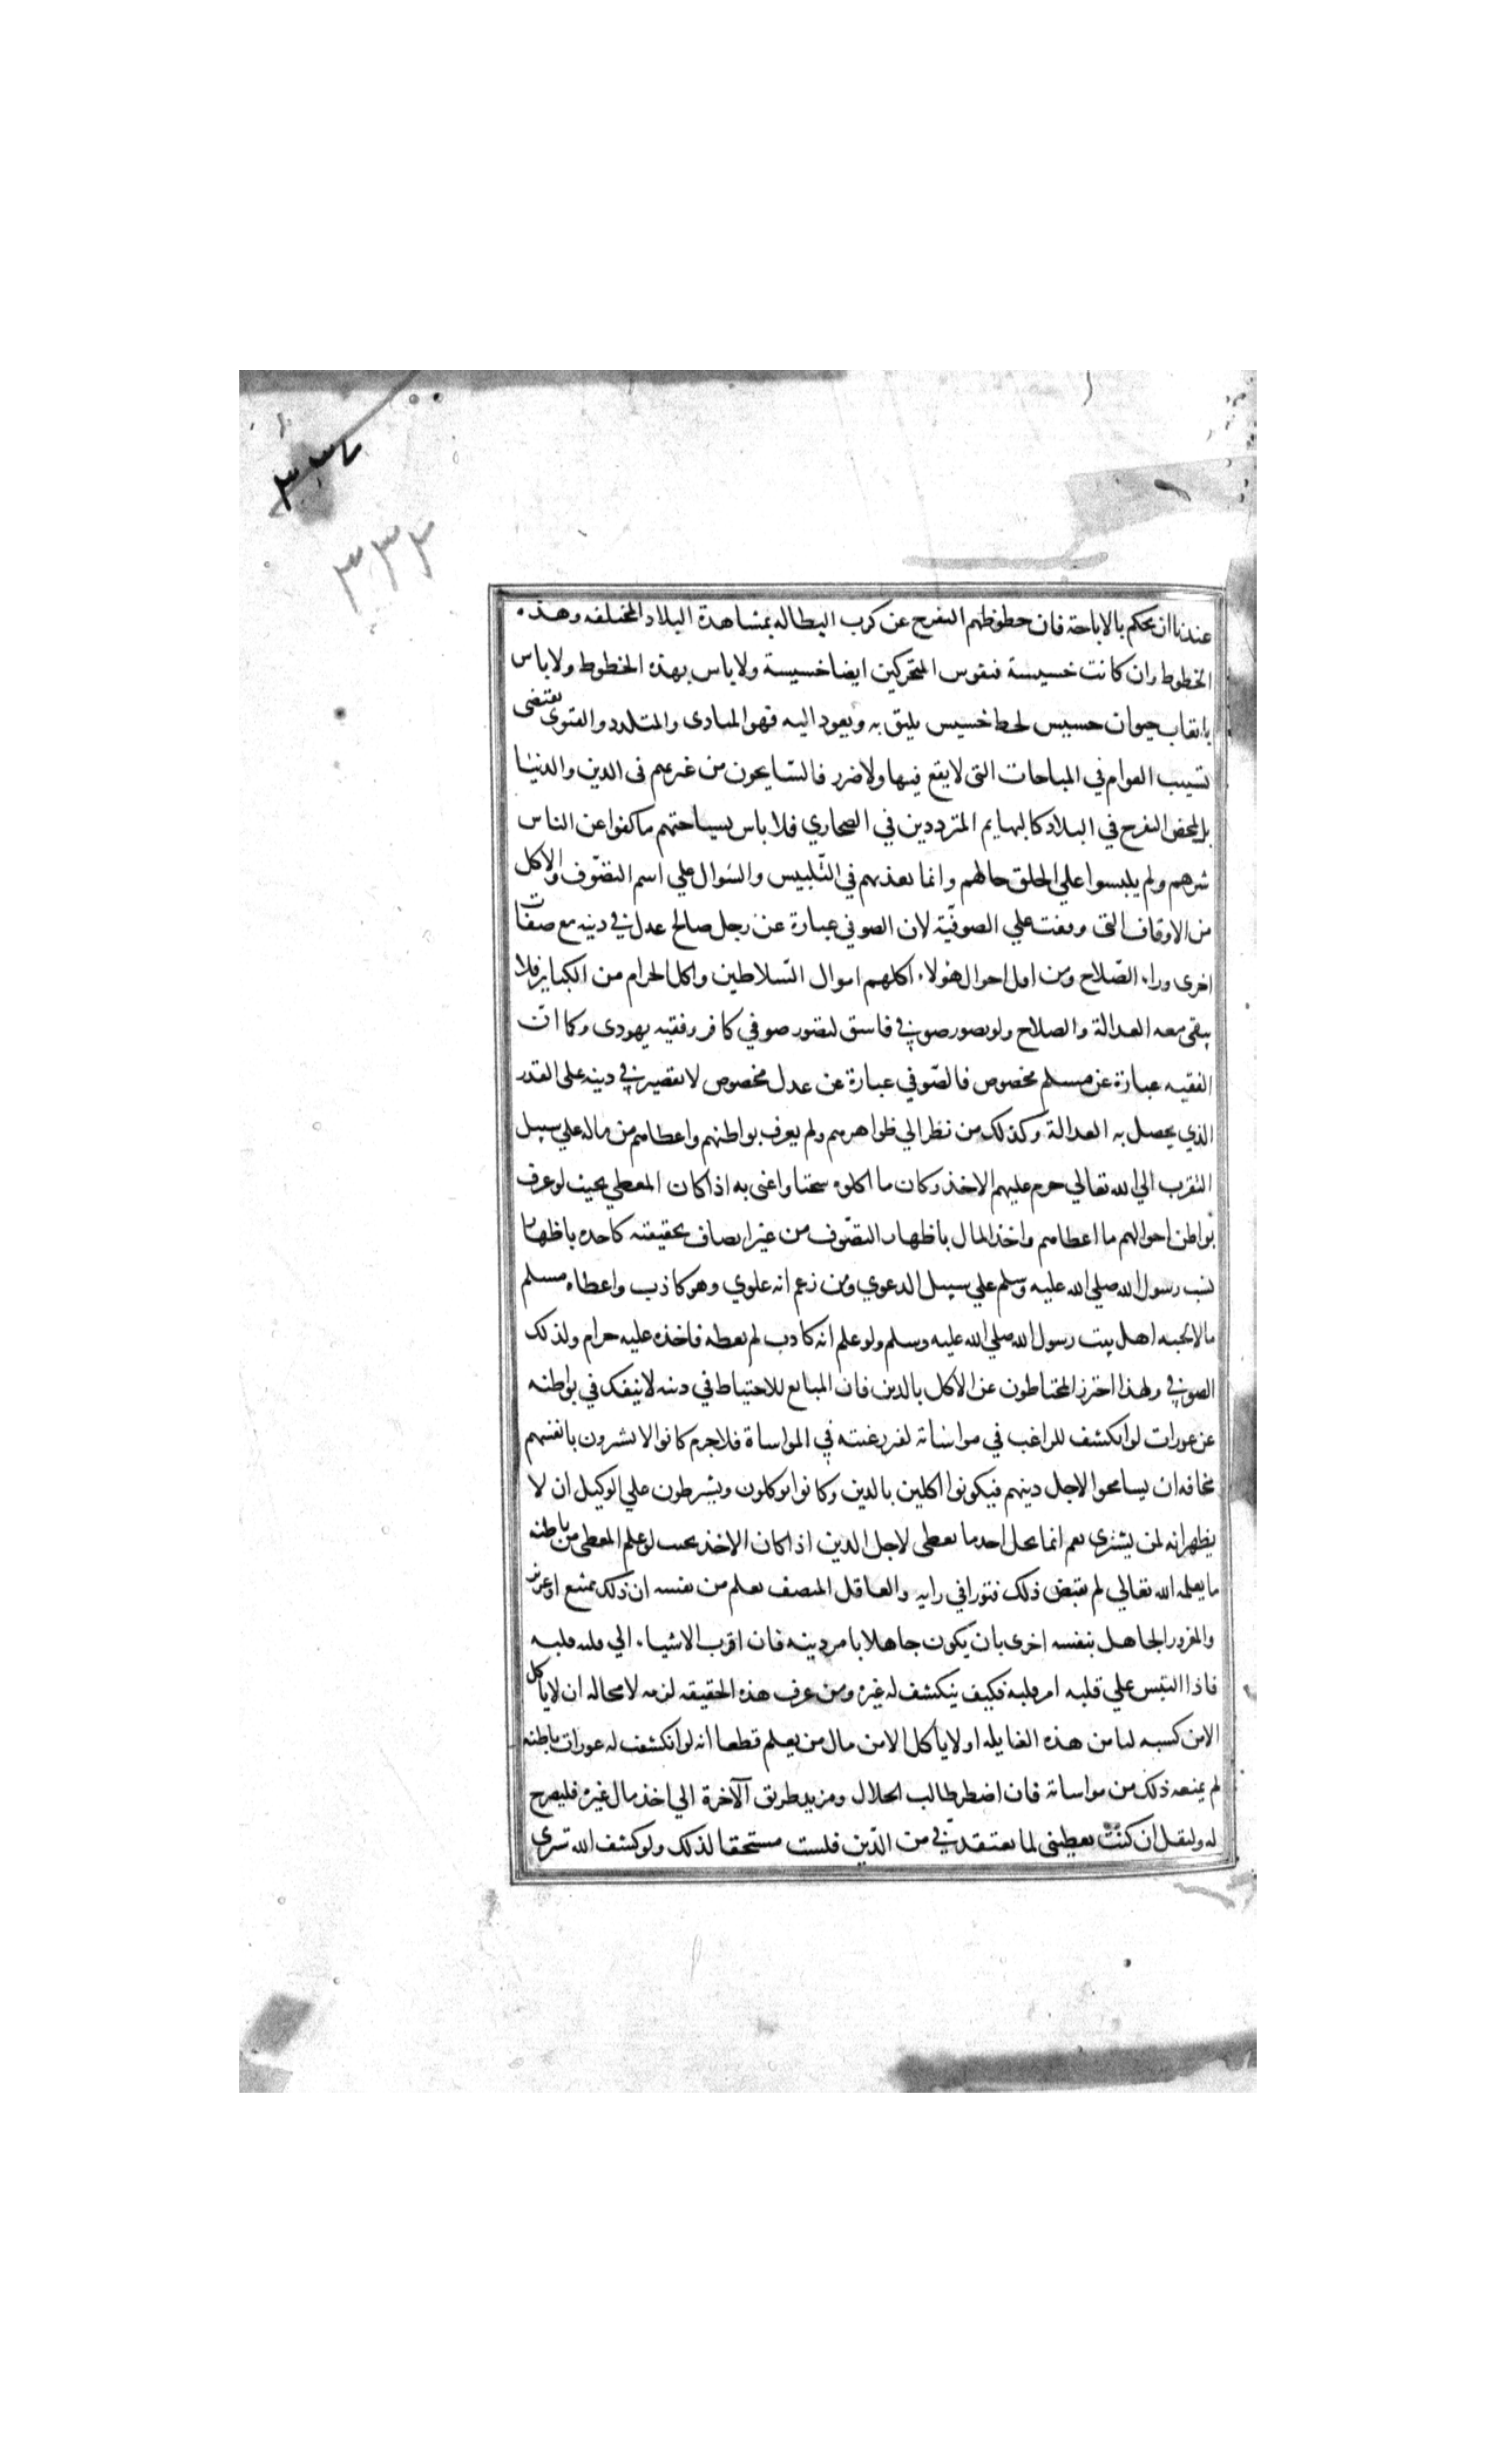 ٣٣٢
٣٣٢
عندنا ان يحكم بالاباحة فان حظوظهم التفرج عن كرب البطاله بمشاهدة البلاد المختلفه وهذه
الحظوظ وان كانت خسيسة فنفوس المتحركين ايضا خسيسة ولا باس بهذه الحظوظ ولا باس
باتعاب حيوان خسيس لحظ خسيس يليق به ويعود اليه فهو المتادى والمتلدد والفتوى يقتضى
تسيب العوام في المباحات التى لا يقع فيها ولا ضرر فالسّايحون من غرمهم فى الدين والدنيا
بل لمحض التفرج في البلاد كالبهايم المترددين في الصحاري فلا باس بسياحتهم ما كفوا عن الناس
شرهم ولم يلبسوا علي الخلق حالهم وانما يعذبهم في التّلبيس والسّوال علي اسم التصّوف والاكل
من الاوقاف التى وقفت علي الصوفّية لان الصوفي عبارة عن رجل صالح عدل في دينه مع صفات
اخرى وراء الصّلاح ومن اول احوال هولاء اكلهم اموال السّلاطين واكل الحرام من الكبايز فلا
يبقى معه العدالة والصلاح ولو تصور صوفي فاسق لتصور صوفي كافر وفقيه يهودى وكما انّ
الفقيه عبارة عن مسلم مخصوص فالصّوفي عبارة عن عدل مخصوص لا تقصير في دينه على القدر
الذي يحصل به العدالة وكذلك من نظر الي ظواهرهم ولم يعرف بواطنهم واعطاهم من ماله علي سبيل
التقرب الي الله تعالي حرم عليهم الاخذ وكان ما اكلوه سحتا واعنى به اذا كان المعطي بحيث لو عرف
بواطن احوالهم ما اعطاهم واخذ المال باظهار التصّوف من غير اتصاف بحقيقته كاخده باظهار
نسب رسول الله صلي الله عليه وسلم علي سبيل الدعوي ومن زعم انه علوي وهو كاذب واعطاه مسلم
مالا لحبه اهل بيت رسول الله صلي الله عليه وسلم ولو علم انه كاذب لم يعطه فاخذه عليه حرام ولذلك
الصوفي ولهذا احترز المحتاطون عن الاكل بالدين فان المبالع للاحتياط في دينه لا ينفك في بواطنه
عن عورات لو انكشف للراغب في مواساته لفر رغبته في المواساة فلا جرم كانوا لا يشرون بانفسهم
مخافه ان يسامحوا لاجل دينهم فيكونوا اكلين بالدين وكانوا يوكلون ويشرطون علي الوكيل ان لا
يظهر انه لمن يشترى نعم انما يحل احد ما يعطى لاجل الدين اذا كان الاخذ بحيث لو علم المعطى من باطنه
ما يعلمه الله تعالي لم يقتض ذلك فتورا في رايه والعاقل المنصف يعلم من نفسه ان ذلك ممتنع او عزيز
والمغرور الجاهل بنفسه اخرى بان يكون جاهلا بامر دينه فان اقرب الاشياء الي قلبه قلبه
فاذا التبس علي قلبه امر قلبه فكيف ينكشف له غيره ومن عرف هذه الحقيقه لزمه لا محاله ان لا ياكل
الا من كسبه ليامن هذه الغايله او لا ياكل الا من مال من يعلم قطعا انه لو انكشف له عورات باطنه
لم يمنعه ذلك من مواساته فان اضطر طالب الحلال ومريد طريق الآخرة الي اخذ مال غيره فليصرح
له وليقل ان كنت تعطينى لما تعتقد فّي من الدّين فلست مستحقا لذلك ولو كشف الله ترى